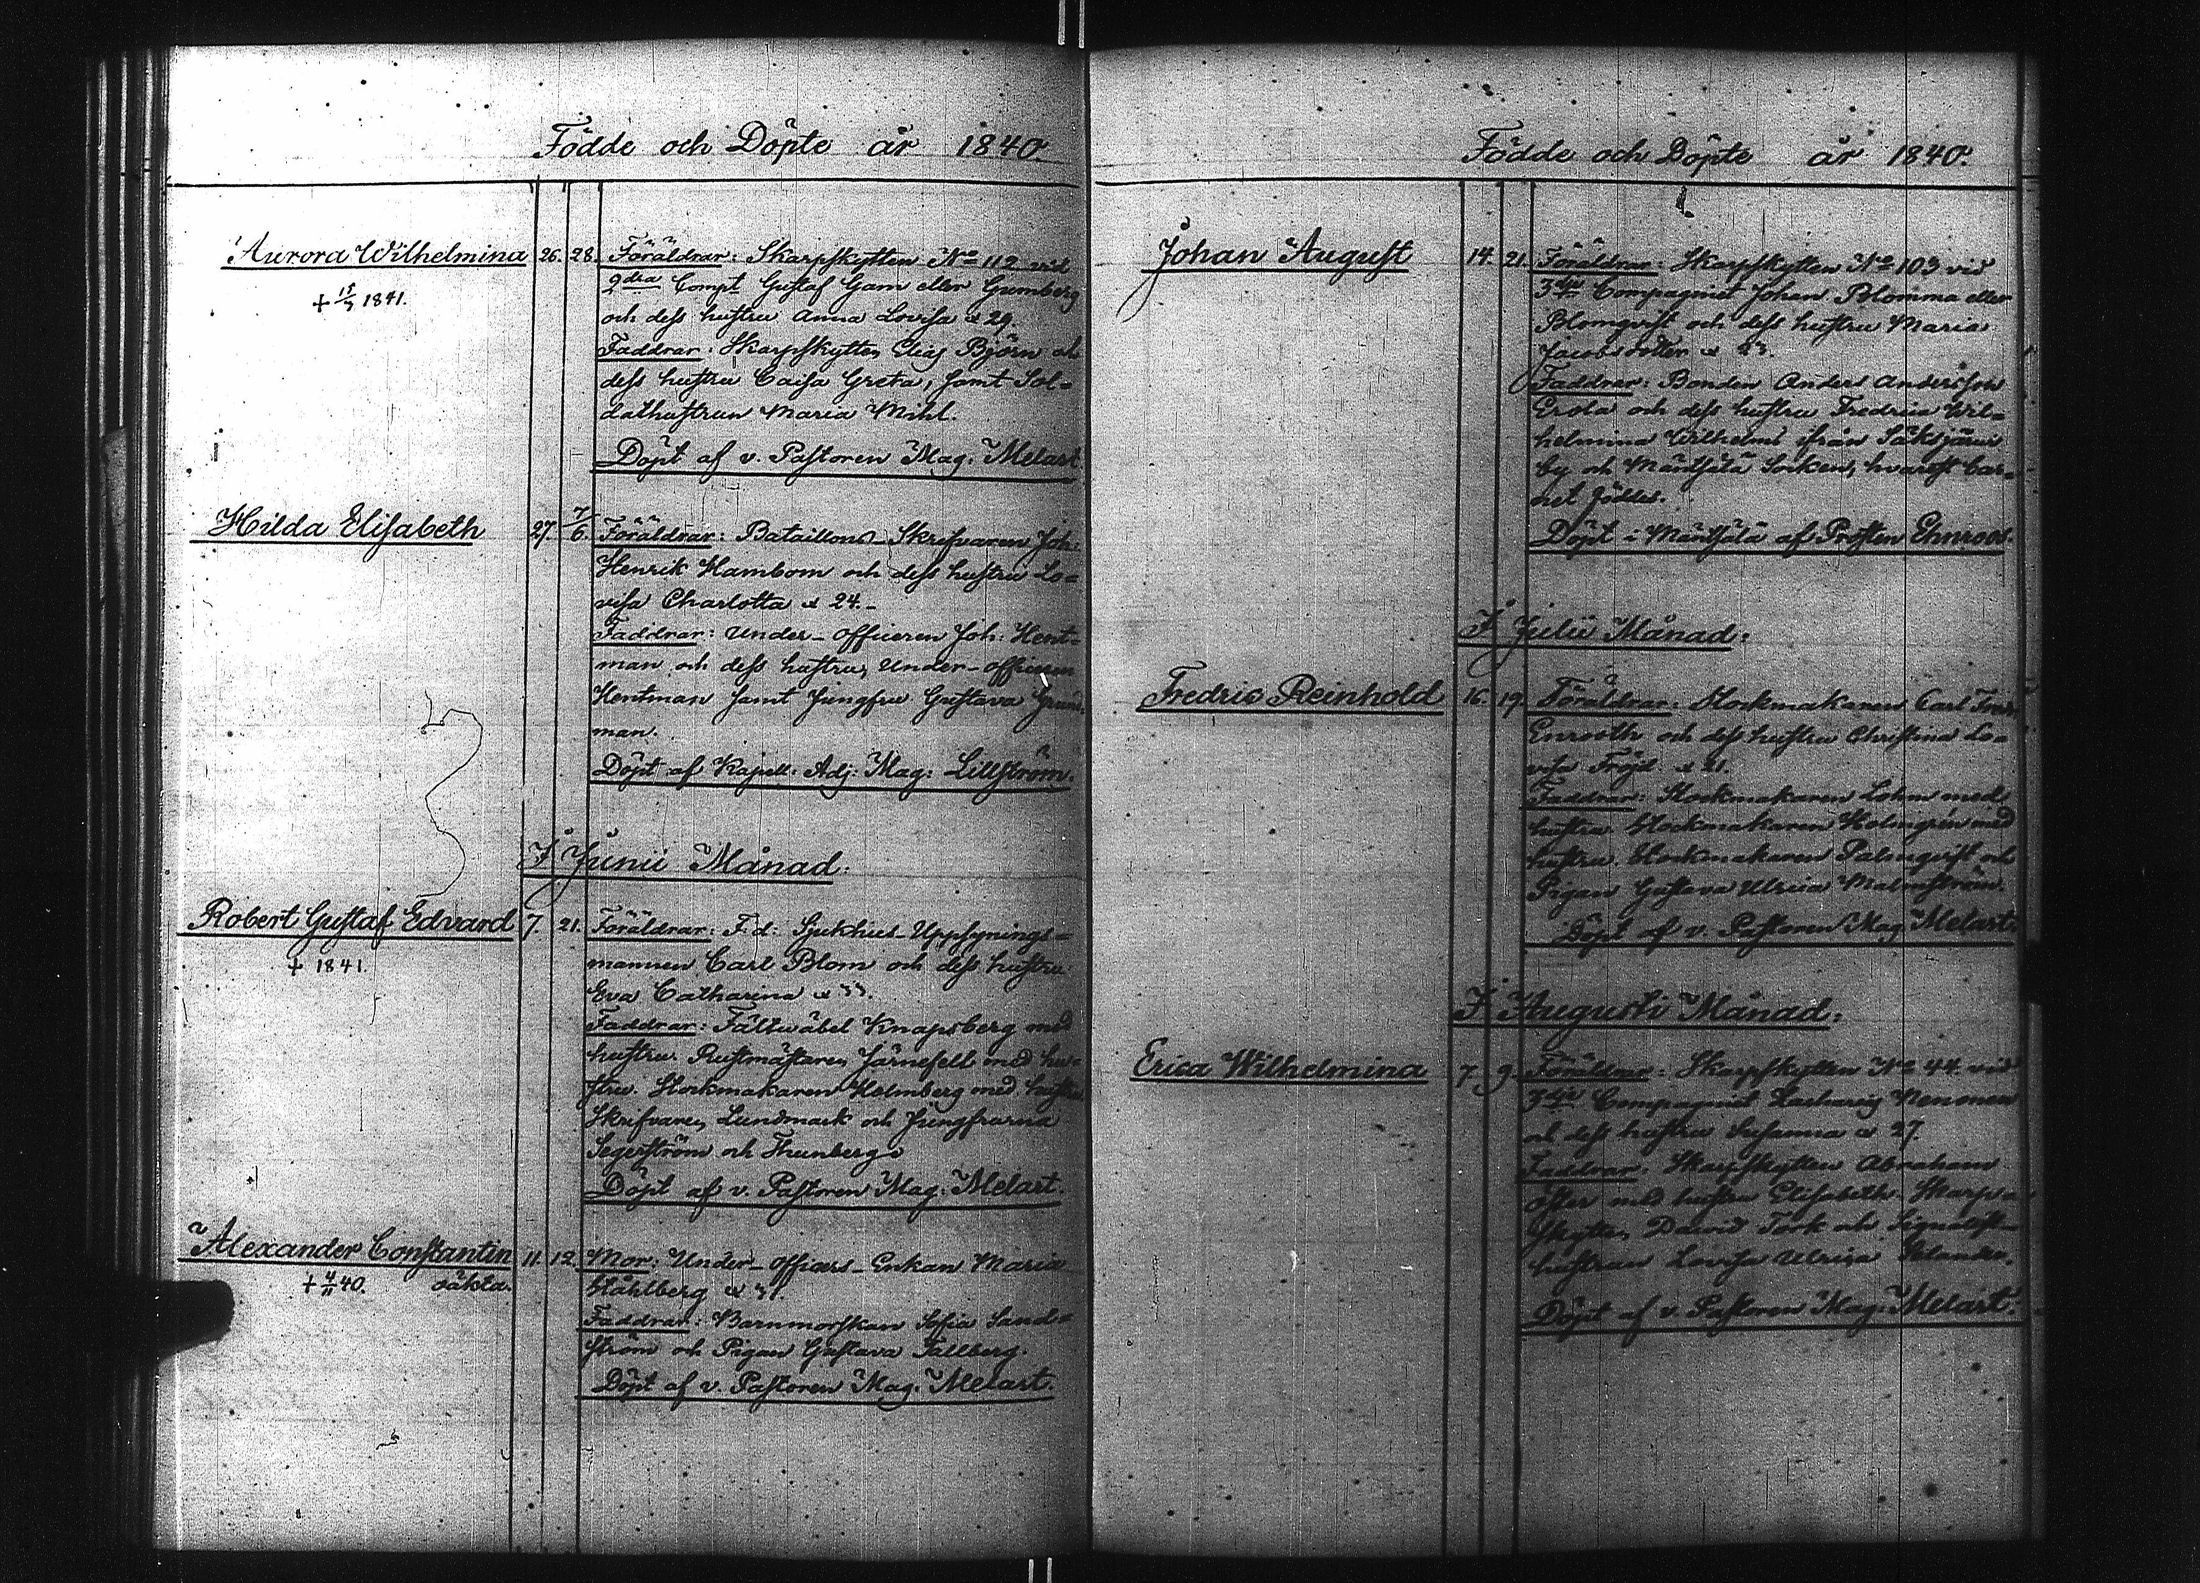 Födde och Döpte år 1840.
Aurora Wilhelmina 26. 28. Föräldrar: Skarpskytten No 112 vid
+ 15/3 1841. 2dra Compt Gustaf Gam eller Gumberg
och dess hustru Anna Lovisa æ 29.
Faddrar: Skarpskytten Elias Björn och
dess hustru Caisa Greta, samt Sol=
dathustrun Maria Mihl.
Döpt af v. Pastoren Mag. Melart.
Hilda Elisabeth 27. 7/6. Föräldrar: Bataillons-Skrifvaren Joh:
Henrik Hambom och dess hustru Lo=
visa Charlotta æ 24.-
Faddrar: Under-officeren Joh: Hent=
man och dess hustru, Under-officeren
Hentman samt Jungfru Gustava
man.
Döpt af Kapell. Adj: Mag: Lillström.
I Junii Månad.
Robert Gustaf Edvard 7. 21. Föräldrar: F.d: Sjukhus-Uppsynings=
+ 1841. mannen Carl Blom och dess hustru
Eva Catharina æ 33.
Faddrar: Fältwäbel Knapsberg med
hustru. Rustmästaren Järnefelt med hu=
stru. Stockmakaren Holmberg med hustru
Skrifvaren Lundmark och Jungfrurna
Segerström och Thunberg.
Döpt af v. Pastoren Mag. Melart.
Alexander Constantin 11. 12. Mor: Under-officers-Enkan Maria
+ 4/11 40. oäkta. Ståhlberg æ 31.
Faddrar: Barnmorskan Sofia Sand=
ström och Pigan Gustava Tallberg.
Döpt af v. Pastoren Mag. Melart.
Födde och Döpte år 1840.
Johan August 14. 21. Föräldrar: Skarpskytten No 103 vid
3dje Compagniet Johan Blomma eller
Blomqvist och dess hustru Maria
Jacobsdotter æ
Faddrar: Bonden Anders Andersson
Erola och dess hustru Fredrica Wil=
helmina Wilhelms ifrån Säksjärvi
by och Mäntsälä Socken, hvarest bar=
net föddes.
Döpt i Mäntsälä af Prosten Ehnroos.
I Julii Månad.
Fredric Reinhold 16. 19. Föräldrar: Stockmakaren Carl Fredr.
Enrooth och dess hustru Christina Lo=
visa Fröjd. æ 21.
Faddrar: Stockmakaren Lohm med
hustru. Stockmakaren Holmgrén med
hustru. Stockmakaren Palmqvist och
Pigan Gustava Ulrica Malmström.
Döpt af v. Pastoren Mag Melart.
I Augusti Månad.
Erica Wilhelmina 7. 9. Föräldrar: Skarpskytten No 44. vid
3dje Compagniet Zacharis Nenonen
och dess hustru Susanna æ 27.
Faddrar. Skarpskytten Abraham
Öster med hustru Elisabeth. Skarp=
skytten David Tork och Signalist=
hustrun Lovisa Ulrica
Döpt af v. Pastoren Mag: Melart.